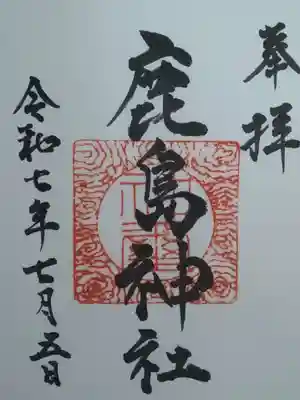 奉拝
鹿島神社
令和七年七月五日